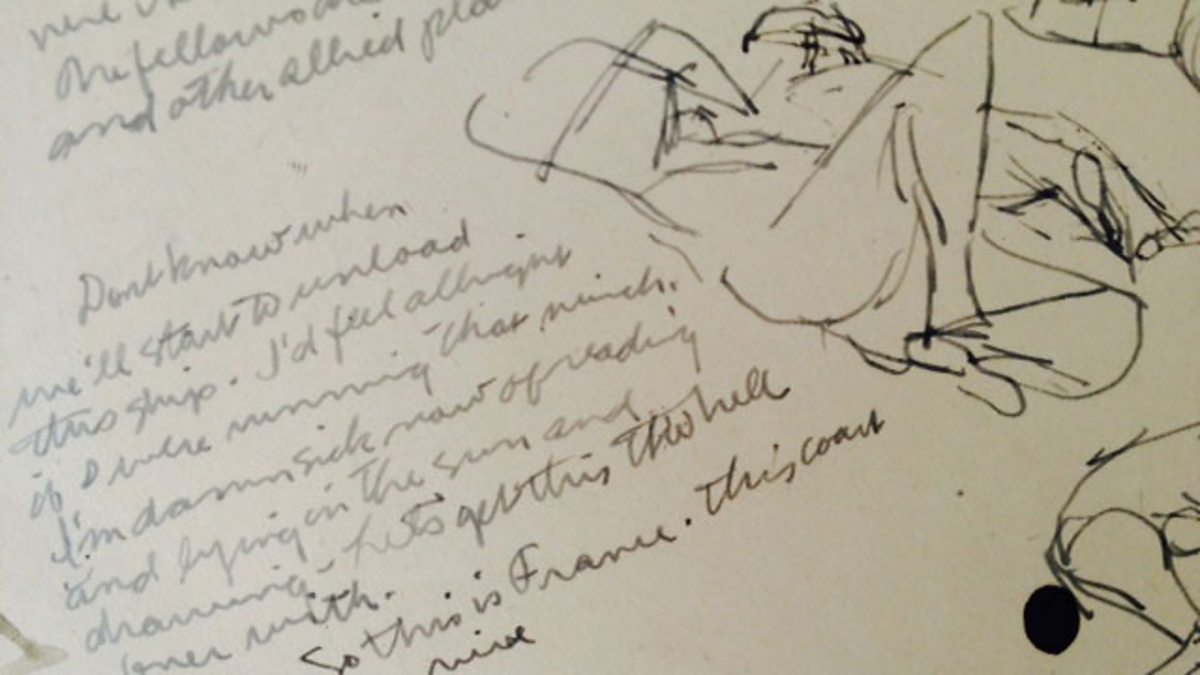 the fellows
and other allied pla
Dont know when
we'll start to unload
this ship. I'd feel allright
if I were running that winch.
I'm damn sick now of reading
and lying in the sun and
drawing - Let's get this to hell
over with.
So this is France. This coast